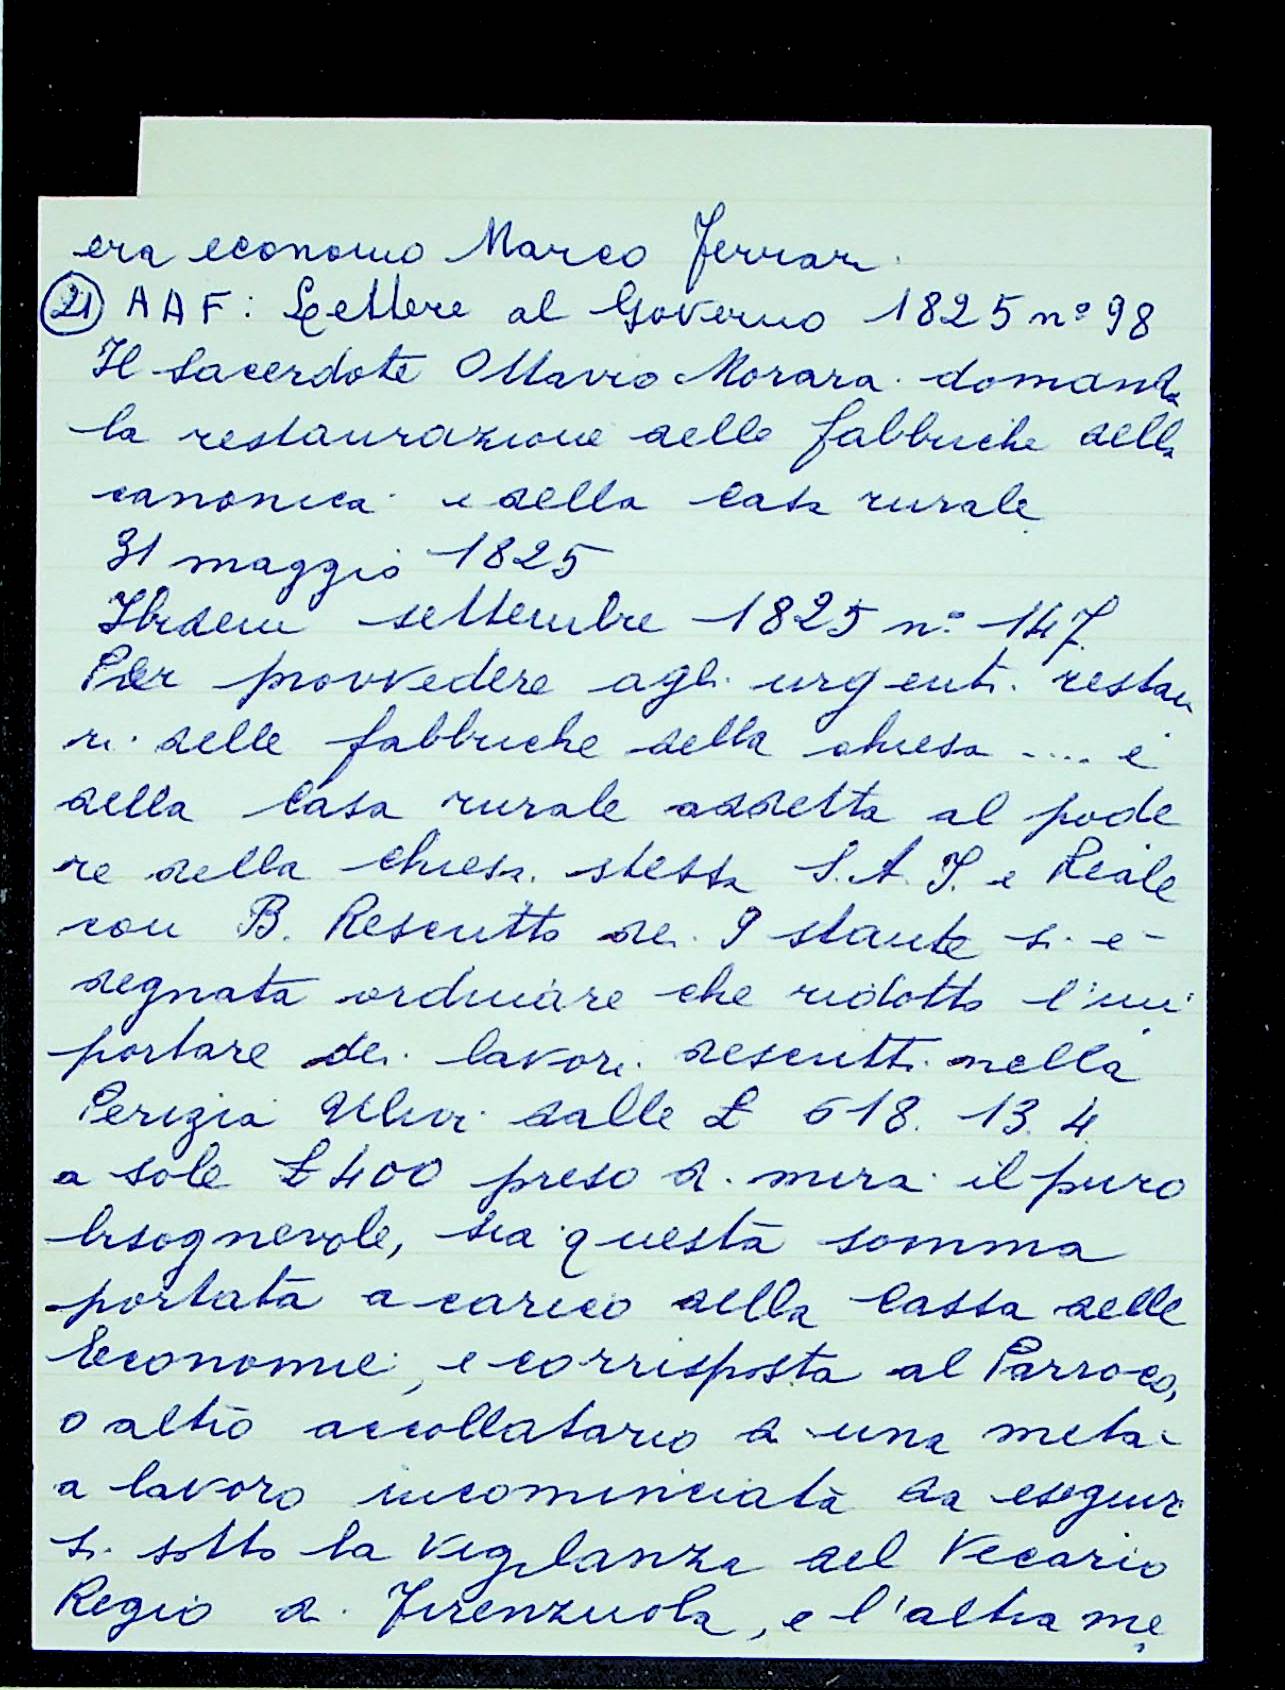 era economo Marco Ferrari
21 AAF: Lettere al Governo 1825 n° 98
Il sacerdote Ottavio Morara domanda
la restaurazione delle fabbriche della
canonica e della casa rurale
31 maggio 1825
Ibidem settembre 1825 n° 147
Per provvedere agli urgenti restau
ri delle fabbriche della chiesa .... e
della casa rurale addetta al pode
re della chiesa stessa S. A. I. e Reale
con B. Rescritto dei 9 stante si è
degnata ordinare che ridotto l'im
portare dei lavori descritti nella
Perizia Ulivi dalle £ 618. 13. 4
a sole £ 400 preso di mira il puro
bisognevole, sia questa somma
portata a carico della Cassa delle
Economie, e corrisposta al Parroco,
o altro accollatario di una metà
a lavoro incominciata da eseguir
si sotto la vigilanza del Vicario
Regio di Firenzuola, e l'altra me